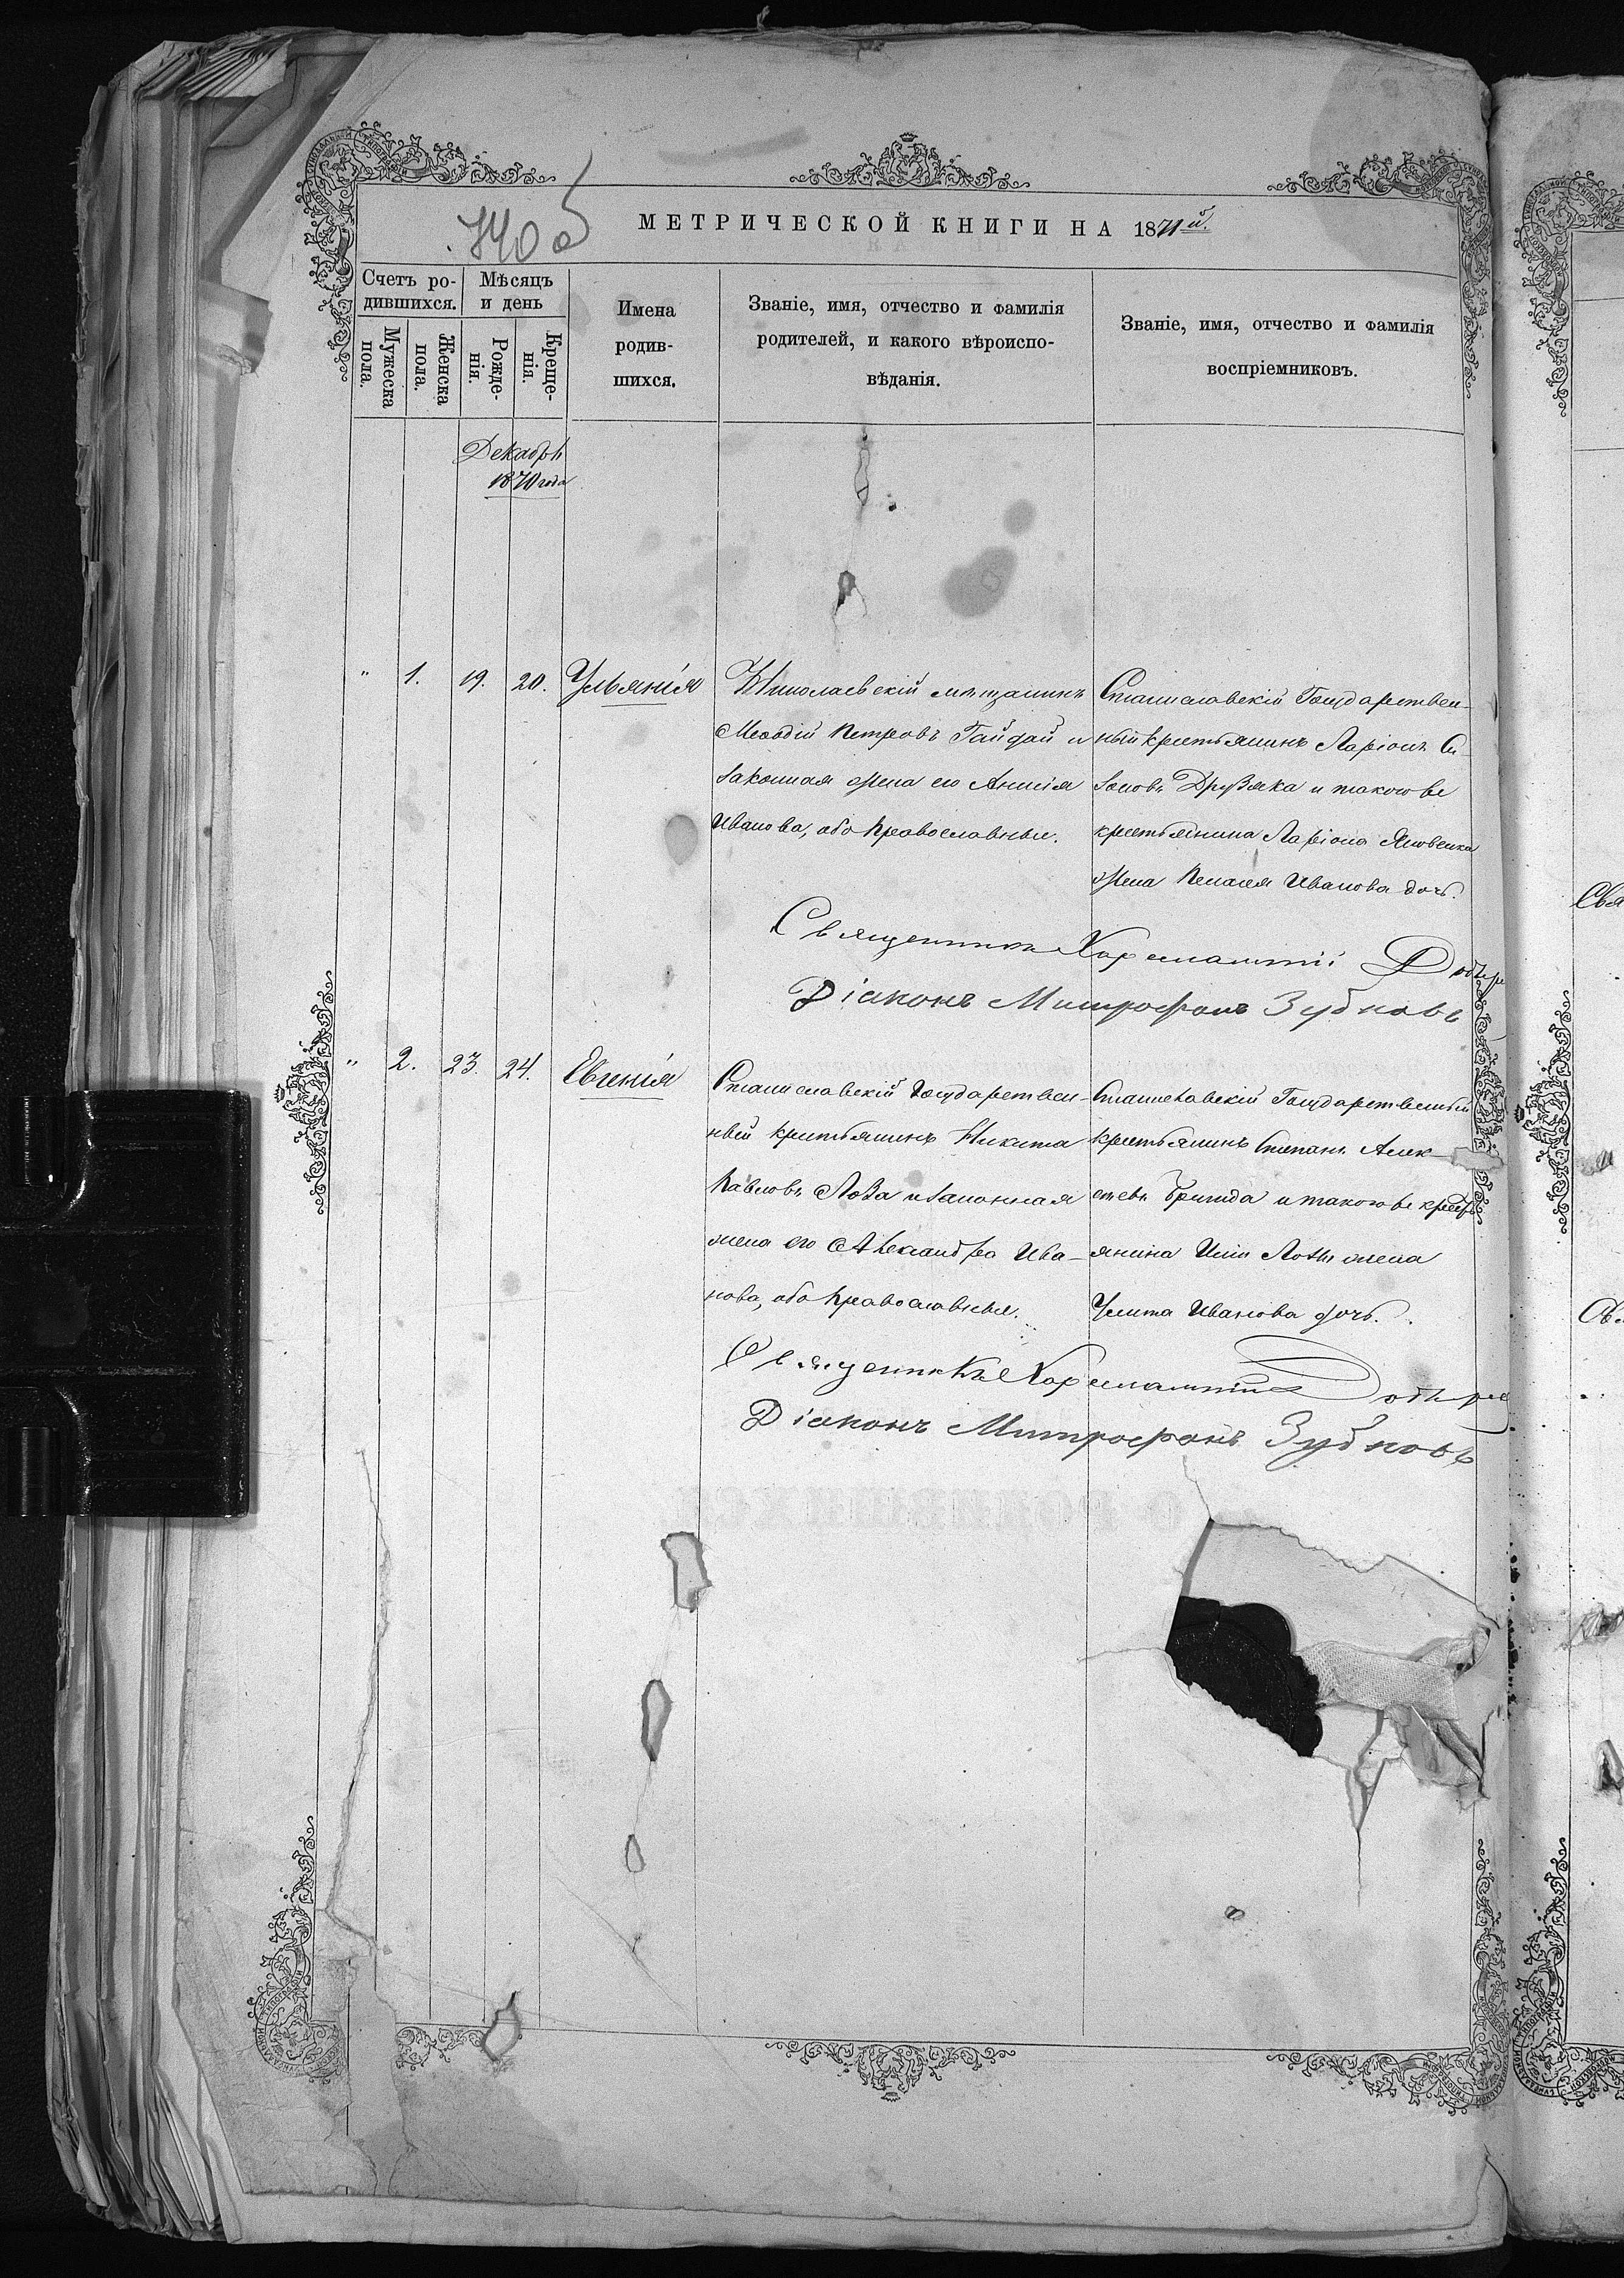 740 об
МЕТРИЧЕСКОЙ КНИГИ НА 1871й.
Счетъ ро-
дившихся.
Мѣсяцъ
и день
Мужеска
пола.
Женска
пола.
Рожде-
нія.
Креще-
нія.
Имена
родив-
шихся.
Званіе, имя, отчество и фамилія
родителей, и какого вѣроиспо-
вѣданія.
Званіе, имя, отчество и фамилія
воспріемниковъ.
Декабрь
1870 года
" 1. 19. 20. Ульянія
Николаевскій мѣщанинъ
Меѳодій Петровъ Гайдай и
законная жена его Анисія
Иванова, оба православные.
Станиславскій Государствен-
ный крестьянинъ Ларіонъ
зоновъ Друзяка и такого же
крестьянина Ларіона Яковенка
жена Пелагея Иванова дочь.
Священникъ Харлампій
Діаконъ Митрофанъ Зубковъ
" 2. 23. 24. Евгенія
Станиславскій Государствен-
ный крестьянинъ Никита
Павловъ Лоза и законная
жена его Александра Ива-
нова, оба православные.
Станиславскій Государственный
крестьянинъ Степанъ Алек
сѣевъ и такого же крест
янина Лозы жена
Улита Иванова дочь.
Священникъ Харлампій
Діаконъ Митрофанъ Зубковъ